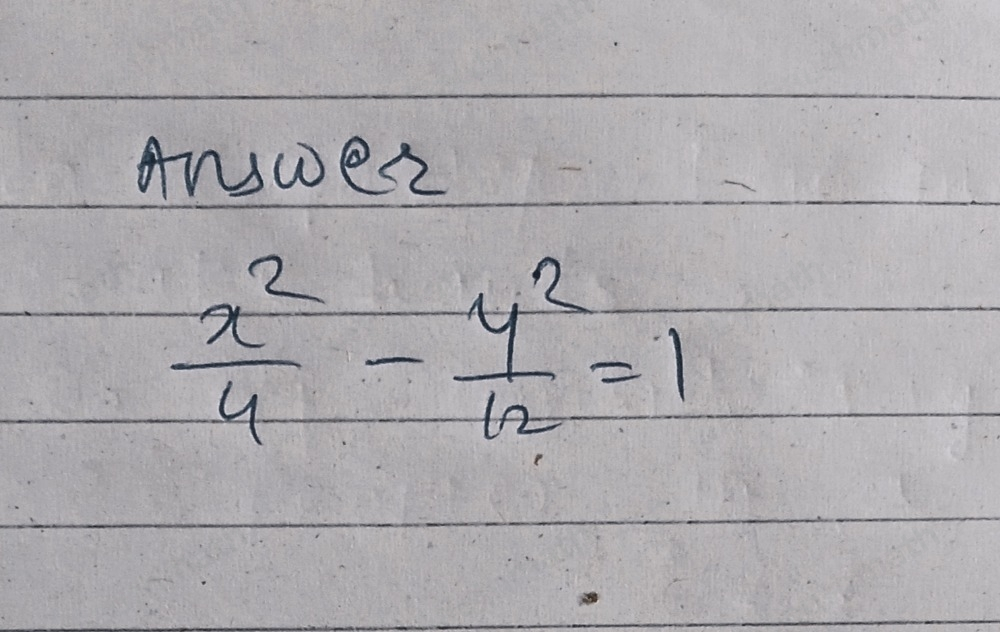 Answer
x²/4 - y²/12 = 1